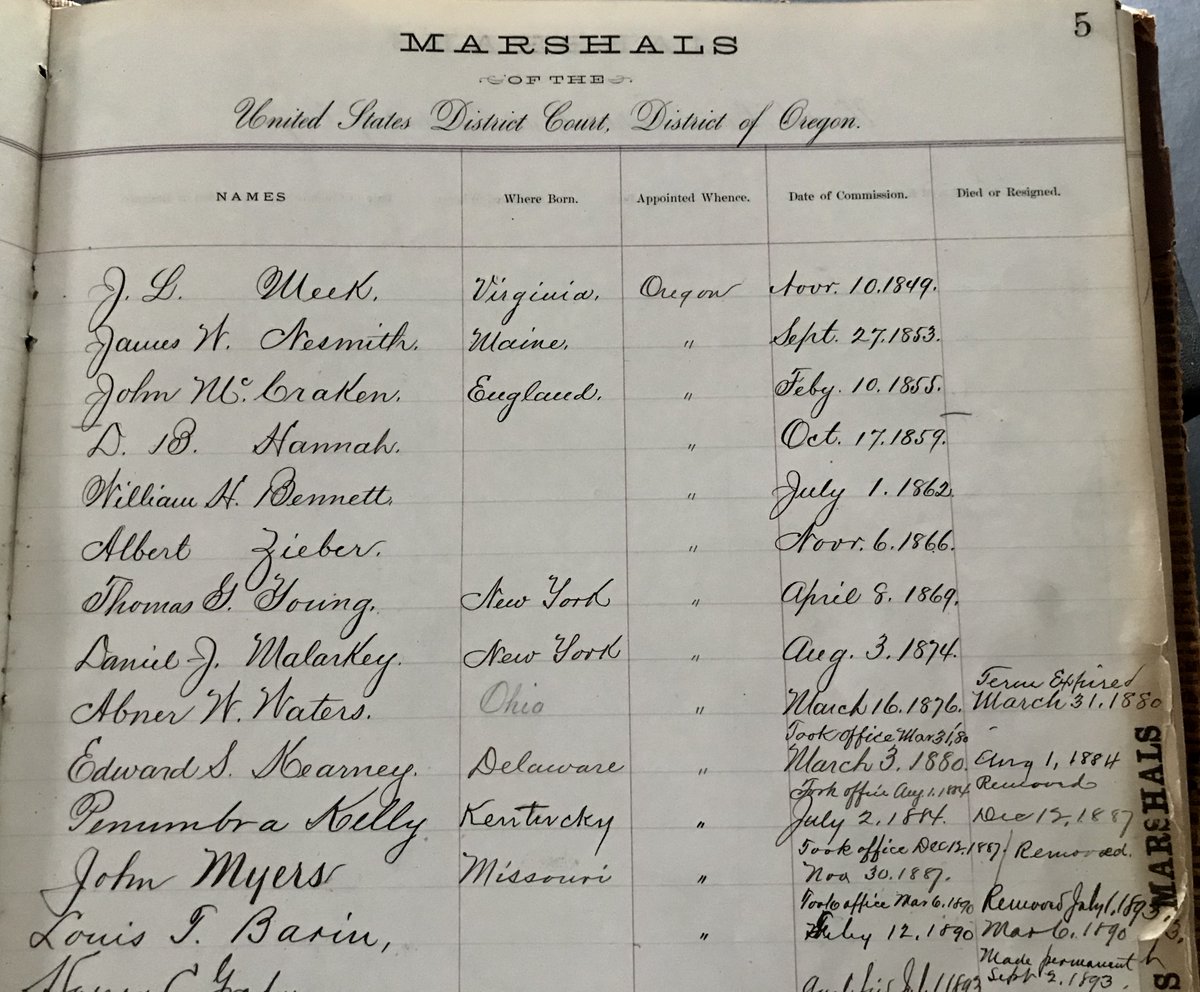 5
MARSHALS
OF THE
United States District Court, District of Oregon.
NAMES Where Born. Appointed Whence. Date of Commission. Died or Resigned.
J. L. Meek. Virginia. Oregon Novr. 10. 1849.
James W. Nesmith. Maine. " Sept. 27. 1853.
John Mc. Craken. England. " Feby. 10. 1855.
D. B. Hannah. " Oct. 17. 1859.
William H. Bennett. " July 1. 1862.
Albert Zieber. " Novr. 6. 1866.
Thomas G. Young. New York " April 8. 1869.
Daniel J. Malarkey. New York " Aug. 3. 1874.
Term Expired
Abner W. Waters. Ohio " March 16. 1876. March 31. 1880
Took office Mar 31, 80
Edward S. Kearney. Delaware " March 3. 1880. Aug 1, 1884
Took office Aug. 1. 1884 Removed
Penumbra Kelly Kentucky " July 2. 1884. Dec 12, 1887
Took office Dec 12. 1887 Removed.
John Myers Missouri " Nov 30. 1887.
Took office Mar 6. 1890 Removed July 1, 1893
Louis T. Barin, " Feby 12. 1890 Mar 6. 1890
Made permanent
July 1 1893 Sept 2. 1893.
MARSHALS